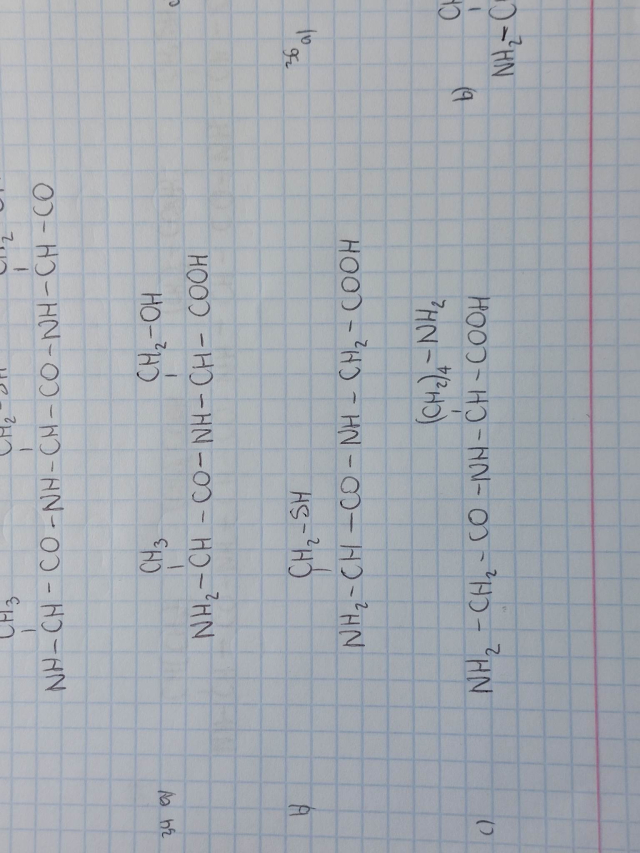 CH3 CH2-SH CH2
NH-CH-CO-NH-CH-CO-NH-CH-CO
34 a)
CH3 CH2-OH
NH2-CH-CO-NH-CH-COOH
b)
CH2-SH
NH2-CH-CO-NH-CH2-COOH
c)
(CH2)4-NH2
NH2-CH2-CO-NH-CH-COOH
36 a)
b)
NH2-C